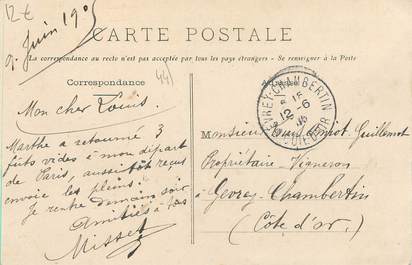 12€
9 Juin 1905
CARTE POSTALE
La correspondance au recto n'est pas acceptée par tous les pays étrangers. - Se renseigner à la Poste
Correspondance
44)
Mon cher Louis.
Marthe a retourné 3
fûts vides à mon départ
de Paris, aussitôt reçus
envoie les pleins.
Je rentre demain soir
Amitiés à tous
Misset
GEVREY-CHAMBERTIN
15
12-6
05
COTE D'OR
Monsieur Guillemot
Propriétaire-Vigneron
à Gevrey-Chambertin
(Côte d'or.)